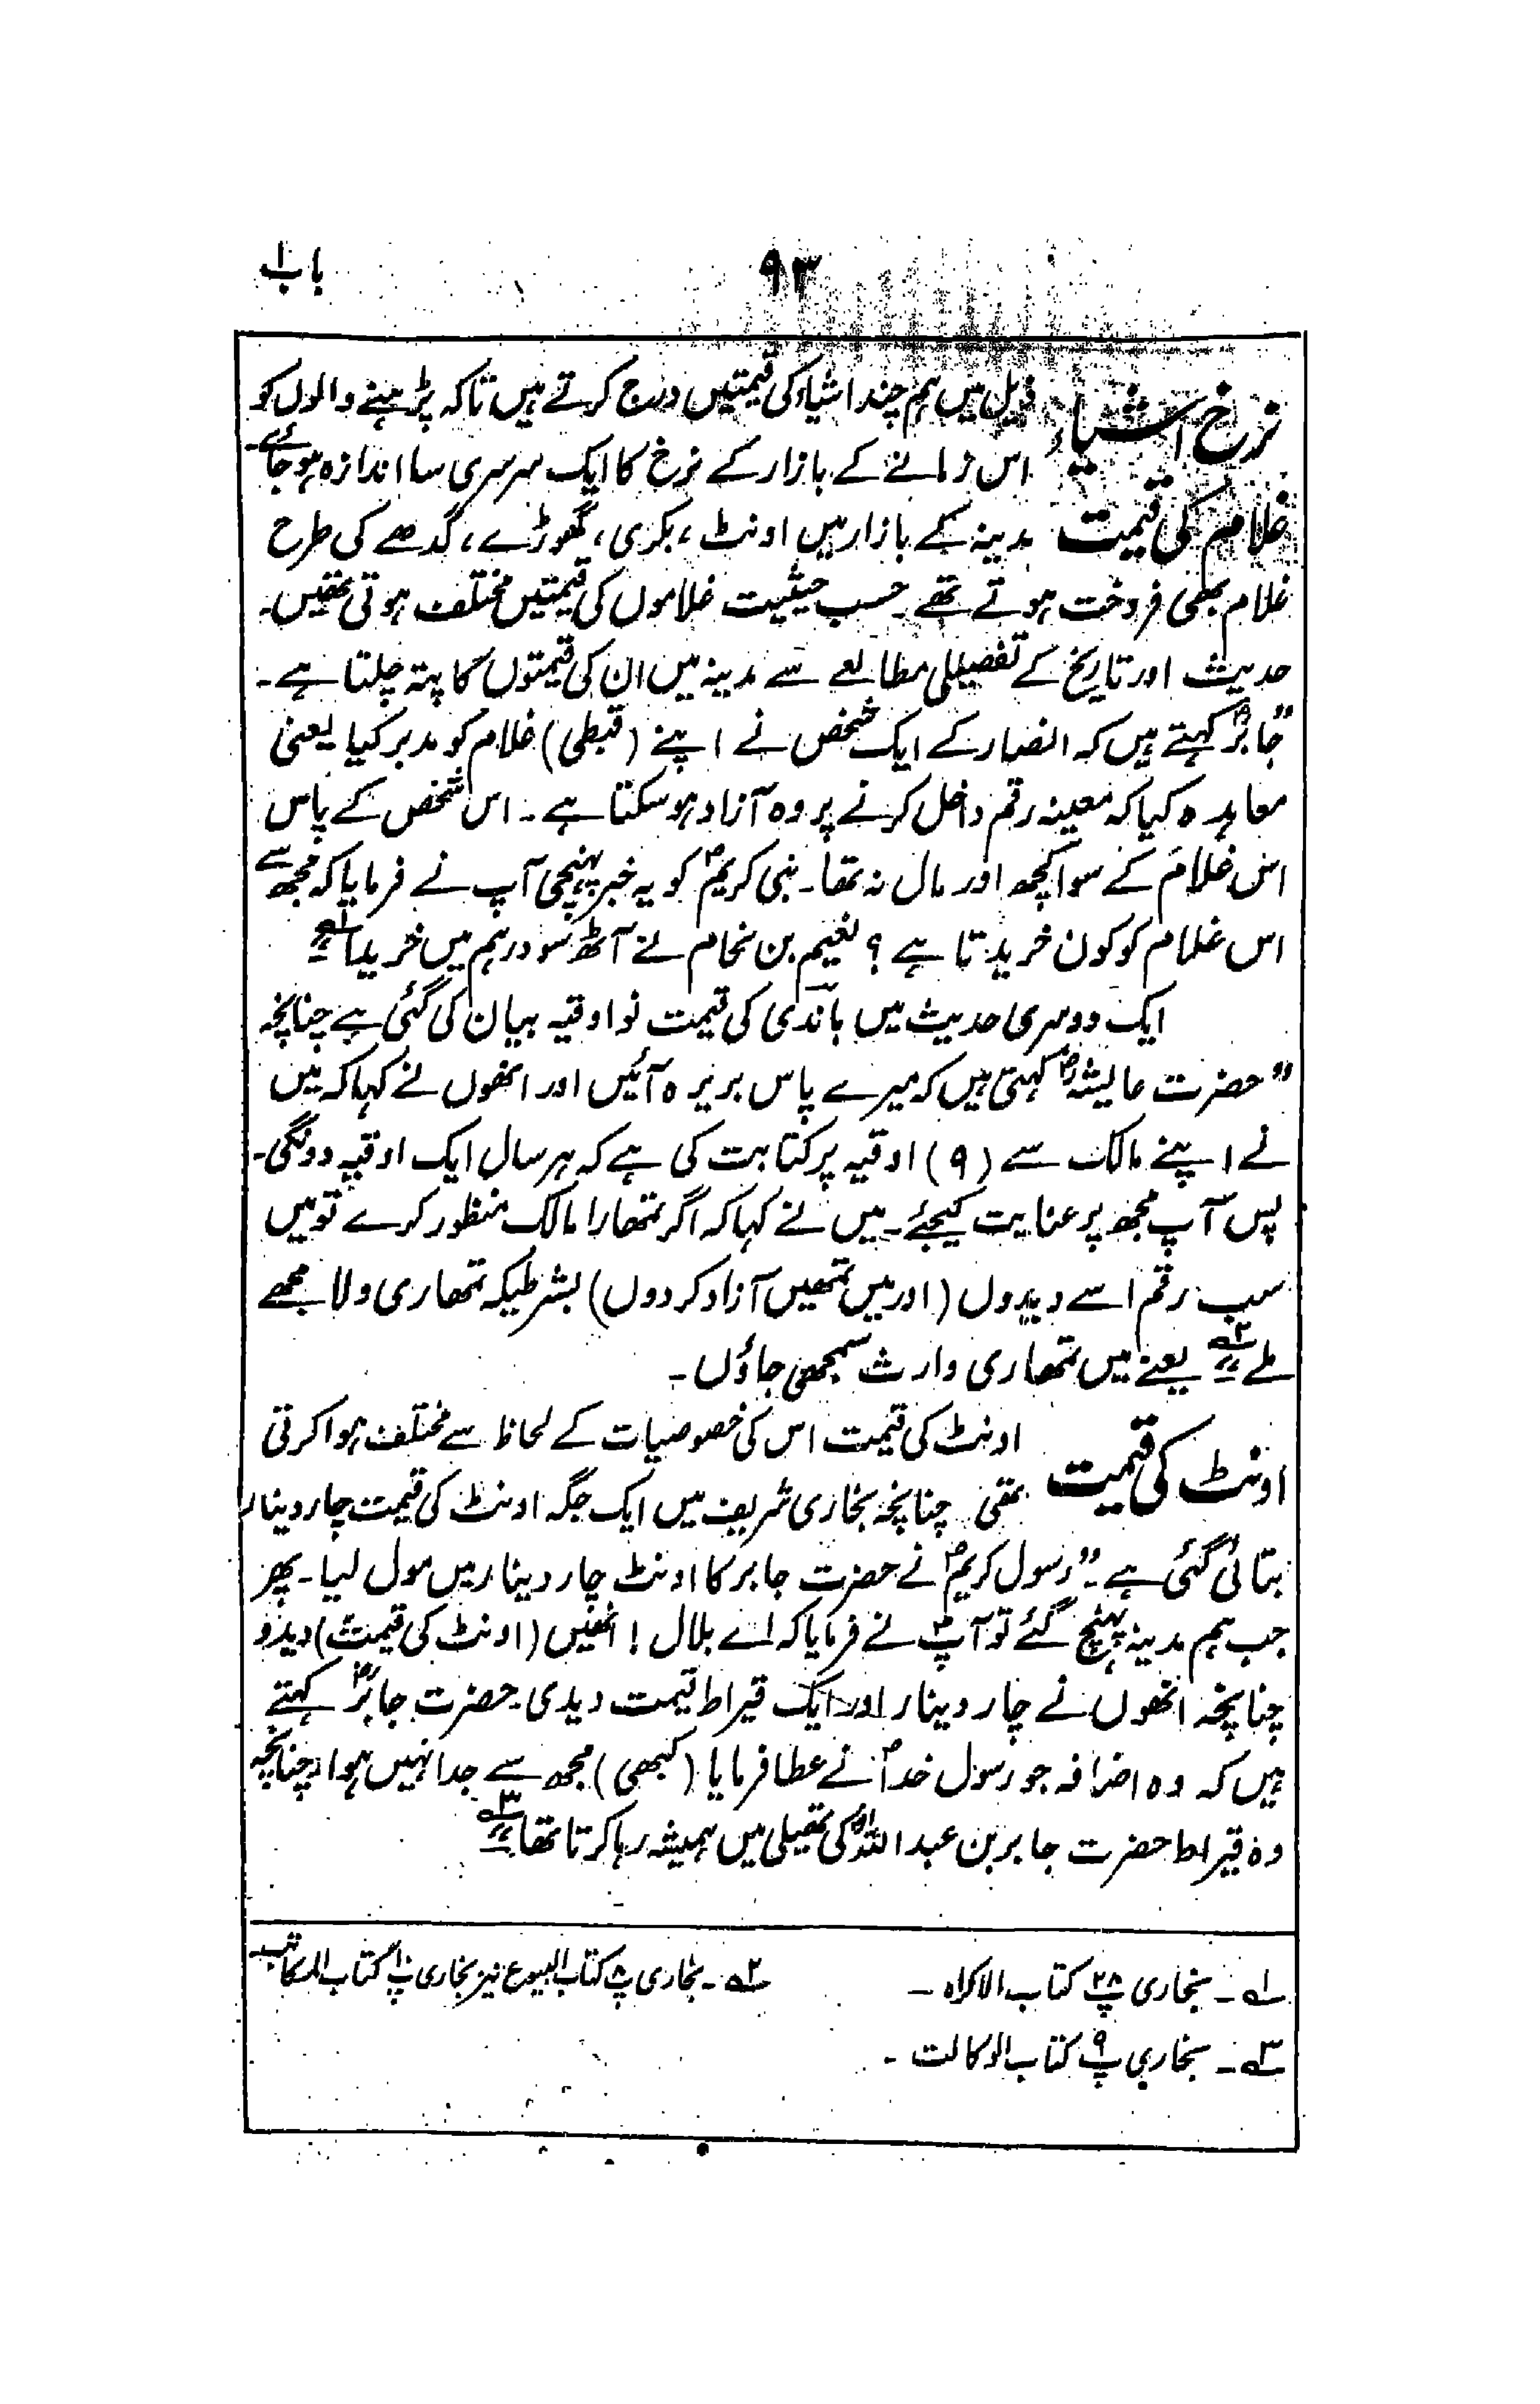 باب ۱
۹۳
نرخ اشیاء ذیل میں ہم چند اشیاء کی قیمتیں درج کرتے ہیں تاکہ پڑہنے والوں کو
اس زمانے کے بازار کے نرخ کا ایک سرسری سا اندازہ ہو جائے۔
غلام کی قیمت مدینہ کے بازار میں اونٹ، بکری، گھوڑے، گدھے کی طرح
غلام بھی فروخت ہوتے تھے۔ حسب حیثیت غلاموں کی قیمتیں مختلف ہوتی تھیں۔
حدیث اور تاریخ کے تفصیلی مطالعے سے مدینہ میں ان کی قیمتوں کا پتہ چلتا ہے۔
”جابرؓ کہتے ہیں کہ انصار کے ایک شخص نے اپنے (قبطی) غلام کو مدبر کیا یعنی
معاہدہ کیا کہ معینہ رقم داخل کرنے پر وہ آزاد ہو سکتا ہے۔ اس شخص کے پاس
اس غلام کے سوا کچھ اور مال نہ تھا۔ نبی کریمؐ کو یہ خبر پہنچی آپ نے فرمایا کہ مجھ سے
اس غلام کو کون خریدتا ہے؟ نعیم بن نحام نے آٹھ سو درہم میں خریدا“ ۱؎
ایک دوسری حدیث میں باندی کی قیمت نو اوقیہ بیان کی گئی ہے چنانچہ
”حضرت عایشہؓ کہتی ہیں کہ میرے پاس بریرہ آئیں اور انھوں نے کہا کہ میں
نے اپنے مالک سے (۹) اوقیہ پر کتابت کی ہے کہ ہر سال ایک اوقیہ دونگی۔
پس آپ مجھ پر عنایت کیجئے۔ میں نے کہا کہ اگر تمھارا مالک منظور کرے تو میں
سب رقم اسے دیدوں (اور میں تمھیں آزاد کر دوں) بشرطیکہ تمھاری ولا مجھے
ملے“ ۲؎ یعنے میں تمھاری وارث سمجھی جاؤں۔
اونٹ کی قیمت اونٹ کی قیمت اس کی خصوصیات کے لحاظ سے مختلف ہوا کرتی
تھی۔ چنانچہ بخاری شریف میں ایک جگہ اونٹ کی قیمت چار دینار
بتائی گئی ہے۔ ”رسول کریمؐ نے حضرت جابر کا اونٹ چار دینار میں مول لیا۔ پھر
جب ہم مدینہ پہنچ گئے تو آپؐ نے فرمایا کہ اے بلال! انھیں (اونٹ کی قیمت) دیدو
چنانچہ انھوں نے چار دینار اور ایک قیراط قیمت دیدی۔ حضرت جابرؓ کہتے
ہیں کہ وہ اضافہ جو رسول خداؐ نے عطا فرمایا (کبھی) مجھ سے جدا نہیں ہوا، چنانچہ
وہ قیراط حضرت جابر بن عبداللہؓ کی تھیلی میں ہمیشہ رہا کرتا تھا“ ۳؎
۱؎۔ بخاری پ۲۸ کتاب الاکراہ۔
۲؎۔ بخاری پ۸ کتاب البیوع نیز بخاری پ۱۰ کتاب المکاتب۔
۳؎۔ بخاری پ۹ کتاب الوکالت۔